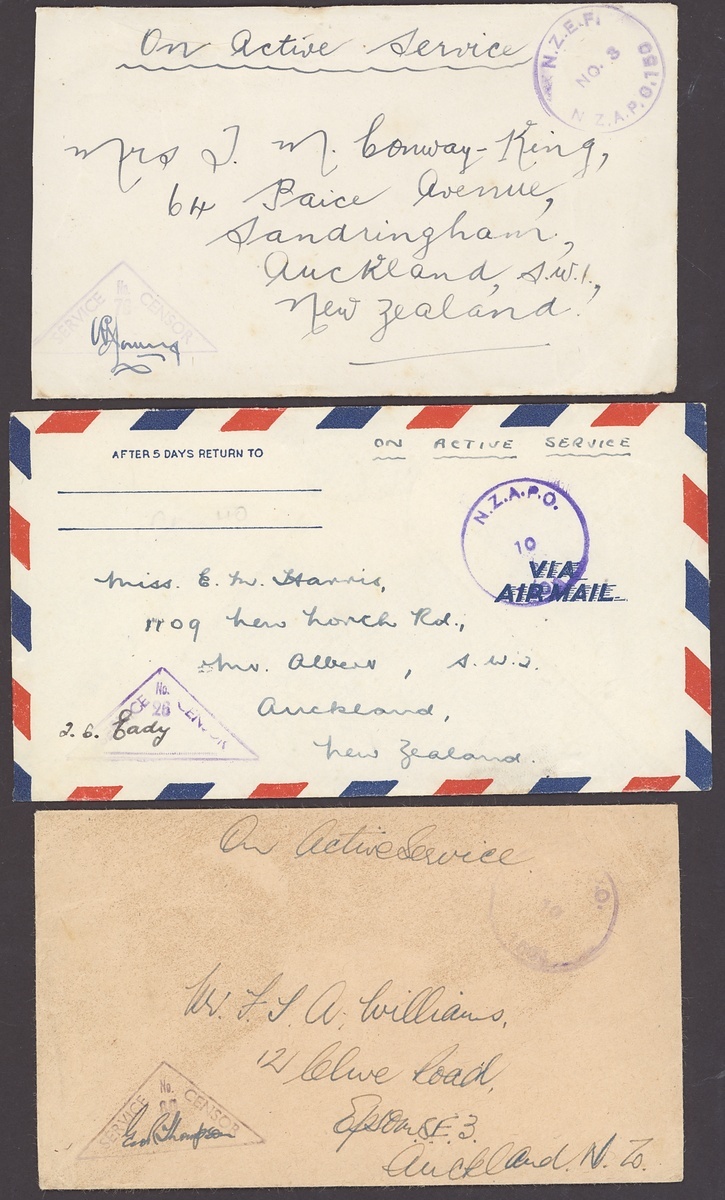 On Active Service
N.Z.E.F.
NO. 3
N Z.A.P.O. 150
Mrs T. M. Conway-King,
64 Paice Avenue,
Sandringham,
Auckland, S.W.1.,
New Zealand.
SERVICE No. CENSOR
Young
AFTER 5 DAYS RETURN TO
ON ACTIVE SERVICE
N.Z.A.P.O.
10
VIA
AIR MAIL
Miss. E. M. Harris,
1709 New North Rd.,
Mt. Albert, S.W.2.
Auckland,
New Zealand.
No.
26
CENSOR
J. G. Eady
On Active Service
O.
10
Mr. F. S. A. Williams,
12 Clive Road,
Epsom S.E.3.
Auckland. N. Z.
SERVICE No. CENSOR
Thompson